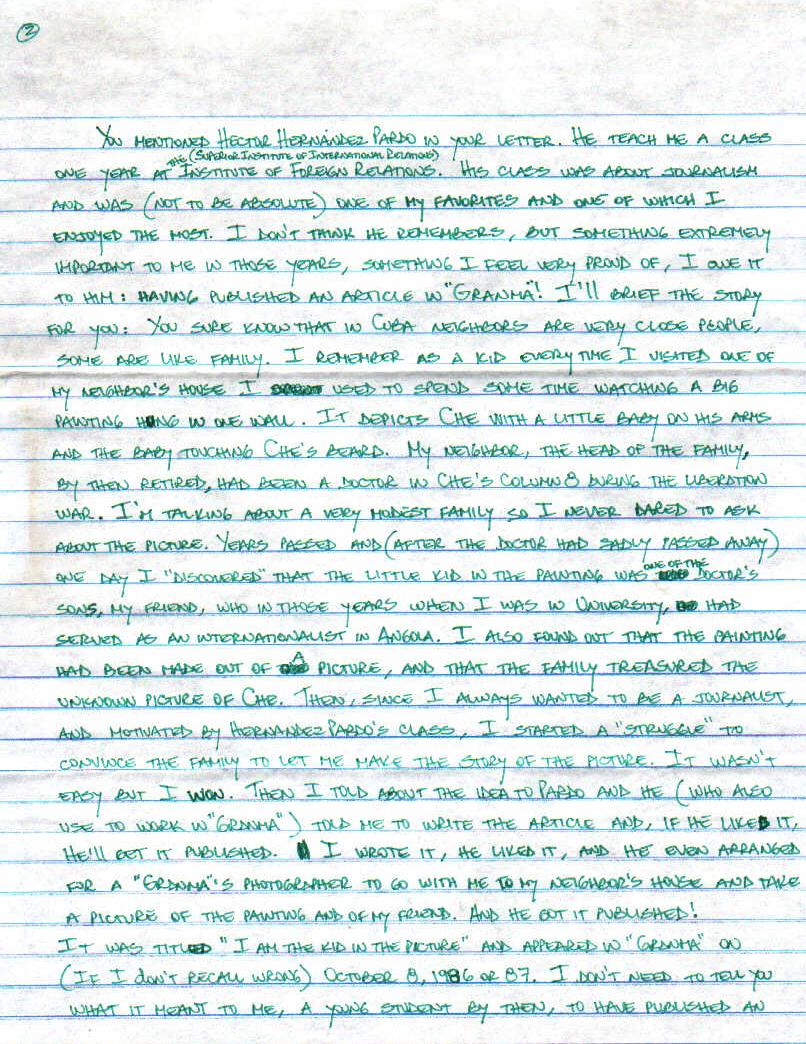 2
You mentioned Hector Hernández Pardo in your letter. He teach me a class
the (Superior Institute of International Relations)
one year at Institute of Foreign Relations. His class was about journalism
and was (not to be absolute) one of my favorites and one of which I
enjoyed the most. I don't think he remembers, but something extremely
important to me in those years, something I feel very proud of, I owe it
to him: having published an article in "Granma"! I'll brief the story
for you: You sure know that in Cuba neighbors are very close people,
some are like family. I remember as a kid every time I visited one of
my neighbor's house I used to spend some time watching a big
painting hung in one wall. It depicts Che with a little baby on his arms
and the baby touching Che's beard. My neighbor, the head of the family,
by then retired, had been a doctor in Che's column 8 during the liberation
war. I'm talking about a very modest family so I never dared to ask
about the picture. Years passed and (after the doctor had sadly passed away)
one day I "discovered" that the little kid in the painting was one of the doctor's
sons, my friend, who in those years when I was in University, had
served as an internationalist in Angola. I also found out that the painting
had been made out of a picture, and that the family treasured the
unknown picture of Che. Then, since I always wanted to be a journalist,
and motivated by Hernandez Pardo's class, I started a "struggle" to
convince the family to let me make the story of the picture. It wasn't
easy but I won. Then I told about the idea to Pardo and he (who also
use to work in "Granma") told me to write the article and, if he liked it,
he'll get it published. I wrote it, he liked it, and he even arranged
for a "Granma"'s photographer to go with me to my neighbor's house and take
a picture of the painting and of my friend. And he got it published!
It was titled "I am the kid in the picture" and appeared in "Granma" on
(if I don't recall wrong) October 8, 1986 or 87. I don't need to tell you
what it meant to me, a young student by then, to have published an